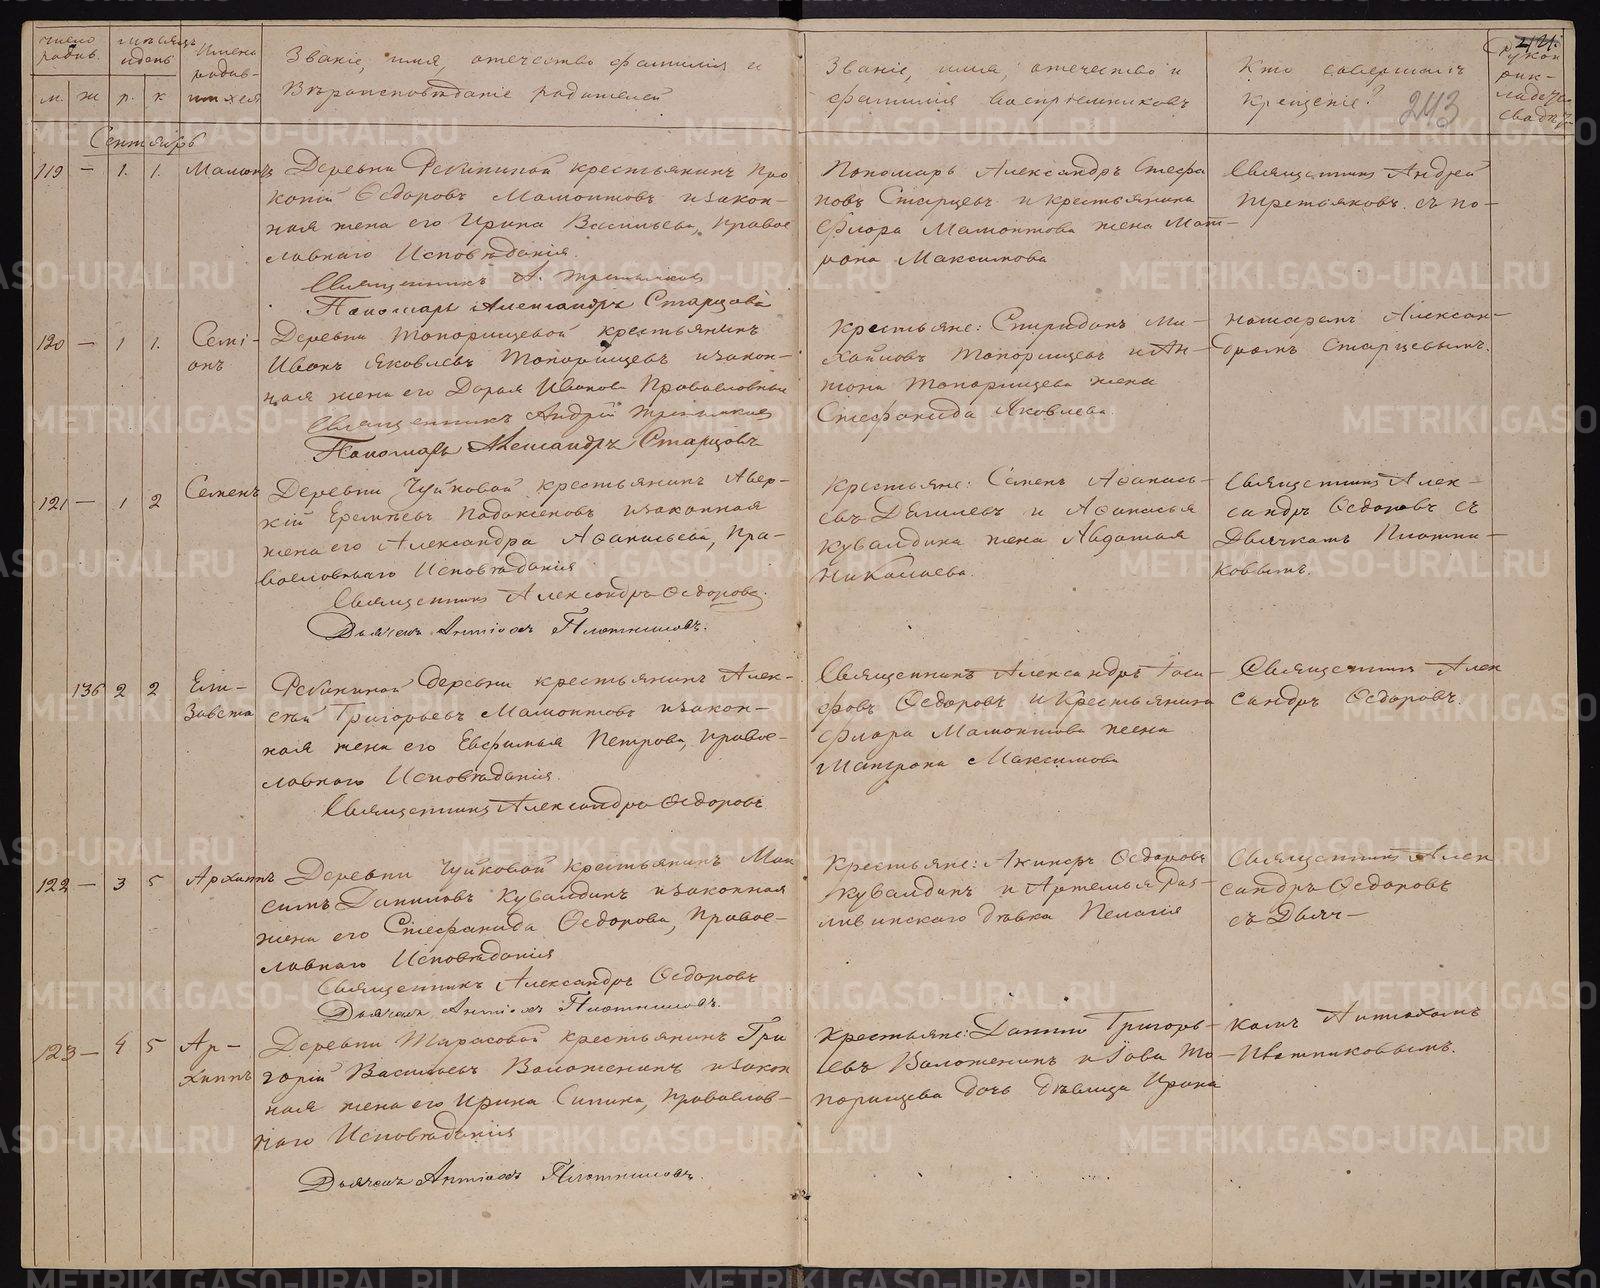 число родив.
м. ж
мѣсяцъ и день
р. к
Имена родив-
шихся
Званіе, имя, отечество фамилія и
Вѣроисповѣданіе родителей
Званіе, имя, отечество и
фамилія воспріемниковъ
Кто совершалъ
крещеніе?
243
Сентябрь
119 — 1. 1. Мамонтъ
Деревни Рябининой крестьянинъ Про
копій Ѳедоровъ Мамонтовъ и закон-
ная жена его Ирина Васильева, Правос
лавнаго Исповѣданія.
Священникъ А. Третьяковъ
Пономарь Александръ Старцовъ
Пономарь Александръ Стефа
новъ Старцевъ и крестьянина
Флора Мамонтова жена Мат-
рона Максимова
Священникъ Андрей
Третьяковъ съ по-
120 — 1 1. Семі-
онъ
Деревни Топорищевой крестьянинъ
Иванъ Яковлевъ Топорищевъ и закон-
ная жена его Дарья Иванова Православные
Священникъ Андрей Третьяковъ
Пономарь Александръ Старцовъ
Крестьяне: Спиридонъ Ми-
хайловъ Топорищевъ и Ан-
тона Топорищева жена
Стефанида Яковлева.
номаремъ Алексан-
дромъ Старцевымъ.
121 — 1 2 Семенъ
Деревни Чуйковой крестьянинъ Авер-
кій Еремѣевъ Подоксеновъ и законная
жена его Александра Аѳанасьева, Пра-
вославнаго Исповѣданія
Священникъ Александръ Ѳедоровъ.
Дьячекъ Антіохъ Плотниковъ.
Крестьяне: Семенъ Аѳанась-
евъ и Аѳанасья
Кувалдина жена Авдотья
Николаева.
Священникъ Алек-
сандръ Ѳедоровъ съ
Дьячкомъ Плотни-
ковымъ.
136 2 2 Ели-
завета
Рябининой деревни крестьянинъ Алек-
сѣй Григорьевъ Мамонтовъ и закон-
ная жена его Евфимья Петрова, Правос-
лавнаго Исповѣданія.
Священникъ Александръ Ѳедоровъ
Священникъ Александръ Іоси-
фовъ Ѳедоровъ и Крестьянина
Флора Мамонтова жена
Матрона Максимова
Священникъ Алек
сандръ Ѳедоровъ.
122 — 3 5 Архиппъ
Деревни Чуйковой крестьянинъ Мак
симъ Даниловъ Кувалдинъ и законная
жена его Стефанида Ѳедорова, Правос-
лавнаго Исповѣданія
Священникъ Александръ Ѳедоровъ
Дьячекъ Антіохъ Плотниковъ.
Крестьяне: Ѳедоровъ
Кувалдинъ и Артемья Раз-
ливинскаго дѣвка Пелагія
Священникъ Алек
сандръ Ѳедоровъ
съ Дьяч-
123 — 4 5 Ар-
хиппъ
Деревни Тарасовой крестьянинъ Гри
горій Васильевъ Воложенинъ и закон
ная жена его Ирина Сипина, Православ-
наго Исповѣданія
Дьячекъ Антіохъ Плотниковъ.
Крестьяне: Данило Григорь-
евъ Воложенинъ и Іова То-
порищева дочь дѣвица Ирина
комъ Антіохомъ
Плотниковымъ.
METRIKI.GASO-URAL.RU